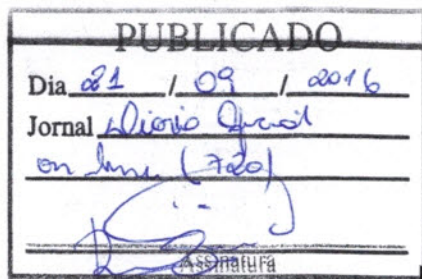 PUBLICADO
Dia 21 / 09 / 2016
Jornal Diário Oficial
on line (720)
Assinatura